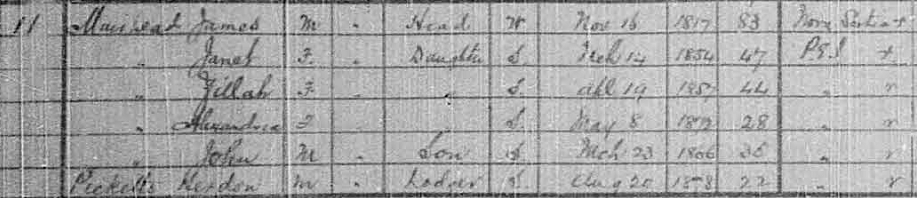 11 Muirhead James M " Head W Nov 16 1817 83 Nova Scotia r
" Janet F " Daughter S Feb 14 1854 47 P.E.I r
" Zillah F " " S Apl 19 1857 44 " r
" Alexandria F S May 8 1872 28 " r
" John M " Son S Mch 23 1866 35 " r
M " Lodger S Aug 20 1878 22 " r